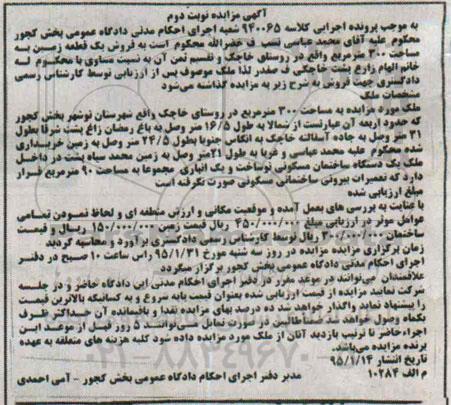 آگهی مزایده نوبت دوم
به موجب پرونده اجرایی کلاسه ۹۴۰۰۶۵ شعبه اجرای احکام مدنی دادگاه عمومی بخش کجور
محکوم علیه آقای محمد عباسی نسب ف خضرالله محکوم است به فروش یک قطعه زمین به
مساحت ۳۰۰ مترمربع واقع در روستای خاچک و تقسیم ثمن آن به نسبت مساوی با محکوم له
خانم الهام زارع پشت خاچکی ف صفدر لذا ملک موصوف پس از ارزیابی توسط کارشناس رسمی
دادگستری جهت فروش به شرح زیر به مزایده گذاشته می‌شود
مشخصات ملک
ملک مورد مزایده به مساحت ۳۰۰ مترمربع در روستای خاچک واقع شهرستان نوشهر بخش کجور
که حدود اربعه آن عبارتست از شمالا به طول ۱۶/۵ متر وصل به باغ رمضان زاغ پشت شرقا بطول
۳۱ متر وصل به جاده آسفالته خاچک به انگاس جنوبا بطول ۲۴/۵ متر وصل به زمین خریداری
شده محکوم علیه محمد عباسی و غربا به طول ۲۱متر وصل به زمین محمد سیاه پشت در داخل
ملک یک دستگاه ساختمان مسکونی نوساخت و یک انباری مجموعا به مساحت ۹۰ مترمربع قرار
دارد که تعمیرات بیرونی ساختمانی مسکونی صورت نگرفته است
مبلغ ارزیابی شده
با عنایت به بررسی های بعمل آمده و موقعیت مکانی و ارزش منطقه ای و لحاظ نمودن تمامی
عوامل موثر در ارزیابی مبلغ ۴۵۰/۰۰۰/۰۰۰ ریال قیمت زمین ۱۵۰/۰۰۰/۰۰۰ ریال و قیمت
ساختمان ۳۰۰/۰۰۰/۰۰۰ ریال توسط کارشناس رسمی دادگستری برآورد و محاسبه گردید
زمان برگزاری مزایده مزایده در روز سه شنبه مورخ ۹۵/۱/۳۱ راس ساعت ۱۰ صبح در دفتر
اجرای احکام مدنی دادگاه عمومی بخش کجور برگزار میگردد
علاقمندان می‌توانند در موعد مقرر در دفتر اجرای احکام مدنی این دادگاه حاضر و در جلسه
شرکت نمایند مزایده از قیمت ارزیابی شده بعنوان قیمت پایه شروع و به کسانیکه بالاترین قیمت
را پیشنهاد نماید واگذار خواهد شد ده درصد بهای مزایده نقدا و باقیمانده آن حداکثر ظرف
یکماه وصول خواهد شد متقاضیان در صورت تمایل می‌توانند ۵ روز قبل از موعد این
اجراء حاضر تا ترتیب بازدید آنان از ملک مورد مزایده داده شود کلیه هزینه های متعلقه به عهده
برنده مزایده می‌باشد.
تاریخ انتشار ۹۵/۱/۱۴
م الف ۱۰۲۸۴ مدیر دفتر اجرای احکام دادگاه عمومی بخش کجور - آمی احمدی
۰۲۱-۸۸۳۴۹۶۷۰